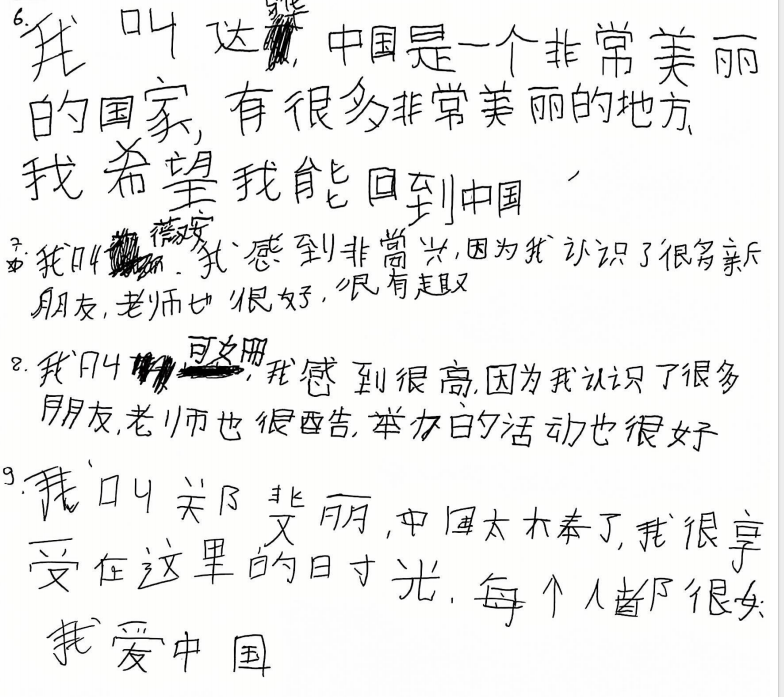 6. 我叫达华, 中国是一个非常美丽
的国家, 有很多非常美丽的地方,
我希望我能回到中国
7. 我叫薇安. 我感到非高兴, 因为我认识了很多新
朋友, 老师也很好, 很有趣
8. 我叫可女册, 我感到很高, 因为我认识了很多
朋友, 老师也很酷, 举办的活动也很好
9. 我叫郑斐丽, 中国太木奉了, 我很享
受在这里的时光. 每个人都很好
我爱中国